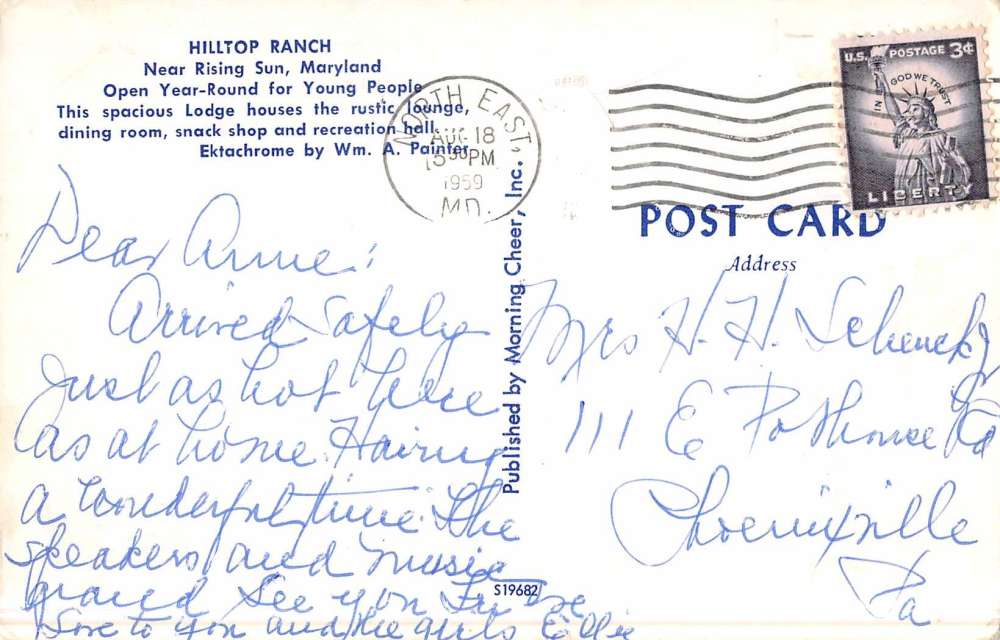 HILLTOP RANCH
Near Rising Sun, Maryland
Open Year-Round for Young People
This spacious Lodge houses the rustic lounge,
dining room, snack shop and recreation hall.
Ektachrome by Wm. A. Painter
NORTH EAST,
AUG 18
530PM
1959
MD.
U.S. POSTAGE 3¢
IN GOD WE TRUST
LIBERTY
POST CARD
Address
Dear Anne:
Arrived Safely
Just as hot here
as at home. Having
a wonderful time. The
speakers and music
grand See you Fri eve
Love to you and the girls
Published by Morning Cheer, Inc.
S19682
Mrs H. H. Schenck Jr
111 E Pothouse Rd
Phoenixville
Pa